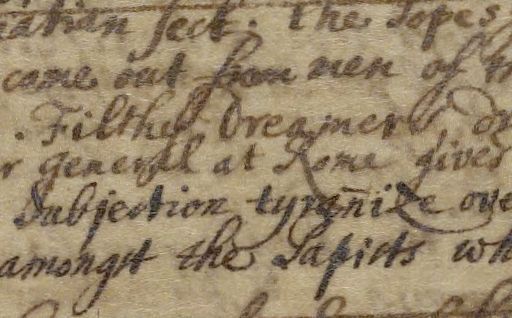 sect. the Popes
come out from men of
. Filthy Dreamers, or
general at Rome gives
Subjection tyrañize ove
amongst the Papists wh